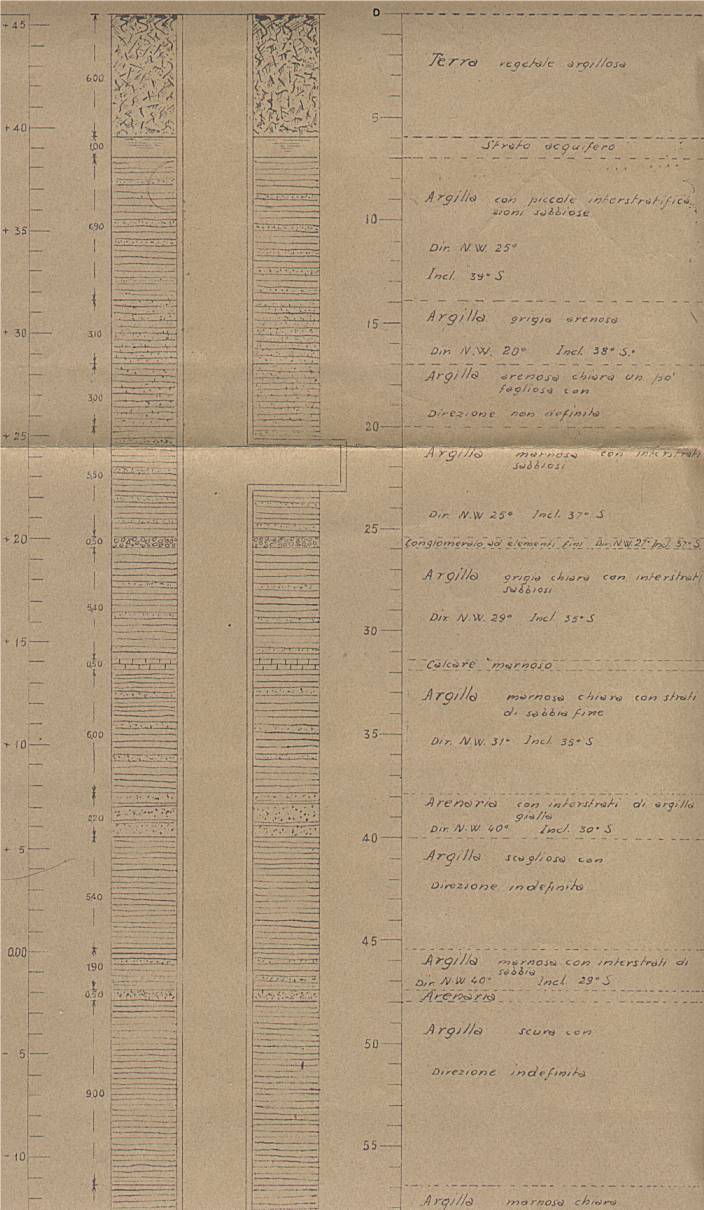 0
+ 45
6.00
Terra vegetale argillosa
5
+ 40
1,00
Strato acquifero
Argilla con piccole interstratifica
zioni sabbiose
+ 35
6,90
10
Dir. N.W. 25°
Incl. 39° S
+ 30
3,10
15
Argilla grigia arenosa
Dir. N.W. 20° Incl. 38° S.
3,00
Argilla arenosa chiara un po'
fogliosa con
Direzione non definita
+ 25
20
Argilla marnosa con interstrati
sabbiosi
5,50
Dir. N.W 25° Incl. 37° S
+ 20
25
0,50
Conglomerato ad elementi fini Dir. N.W. 27° Incl. 37° S
Argilla grigia chiara con interstrati
sabbiosi
5,40
Dir. N.W. 29° Incl. 35° S
+ 15
30
0,50
Calcare marnoso
Argilla marnosa chiara con strati
di sabbia fine
+ 10
6,00
35
Dir. N.W. 31° Incl. 35° S
2,20
Arenaria con interstrati di argilla
gialla
Dir. N.W 40° Incl. 30° S
+ 5
40
Argilla scagliosa con
5,40
Direzione indefinita
0.00
45
1,90
Argilla marnosa con interstrati di
sabbia
Dir. N.W 40° Incl. 29° S
0,50
Arenaria
- 5
50
Argilla scura con
9,00
Direzione indefinita
- 10
55
Argilla marnosa chiara